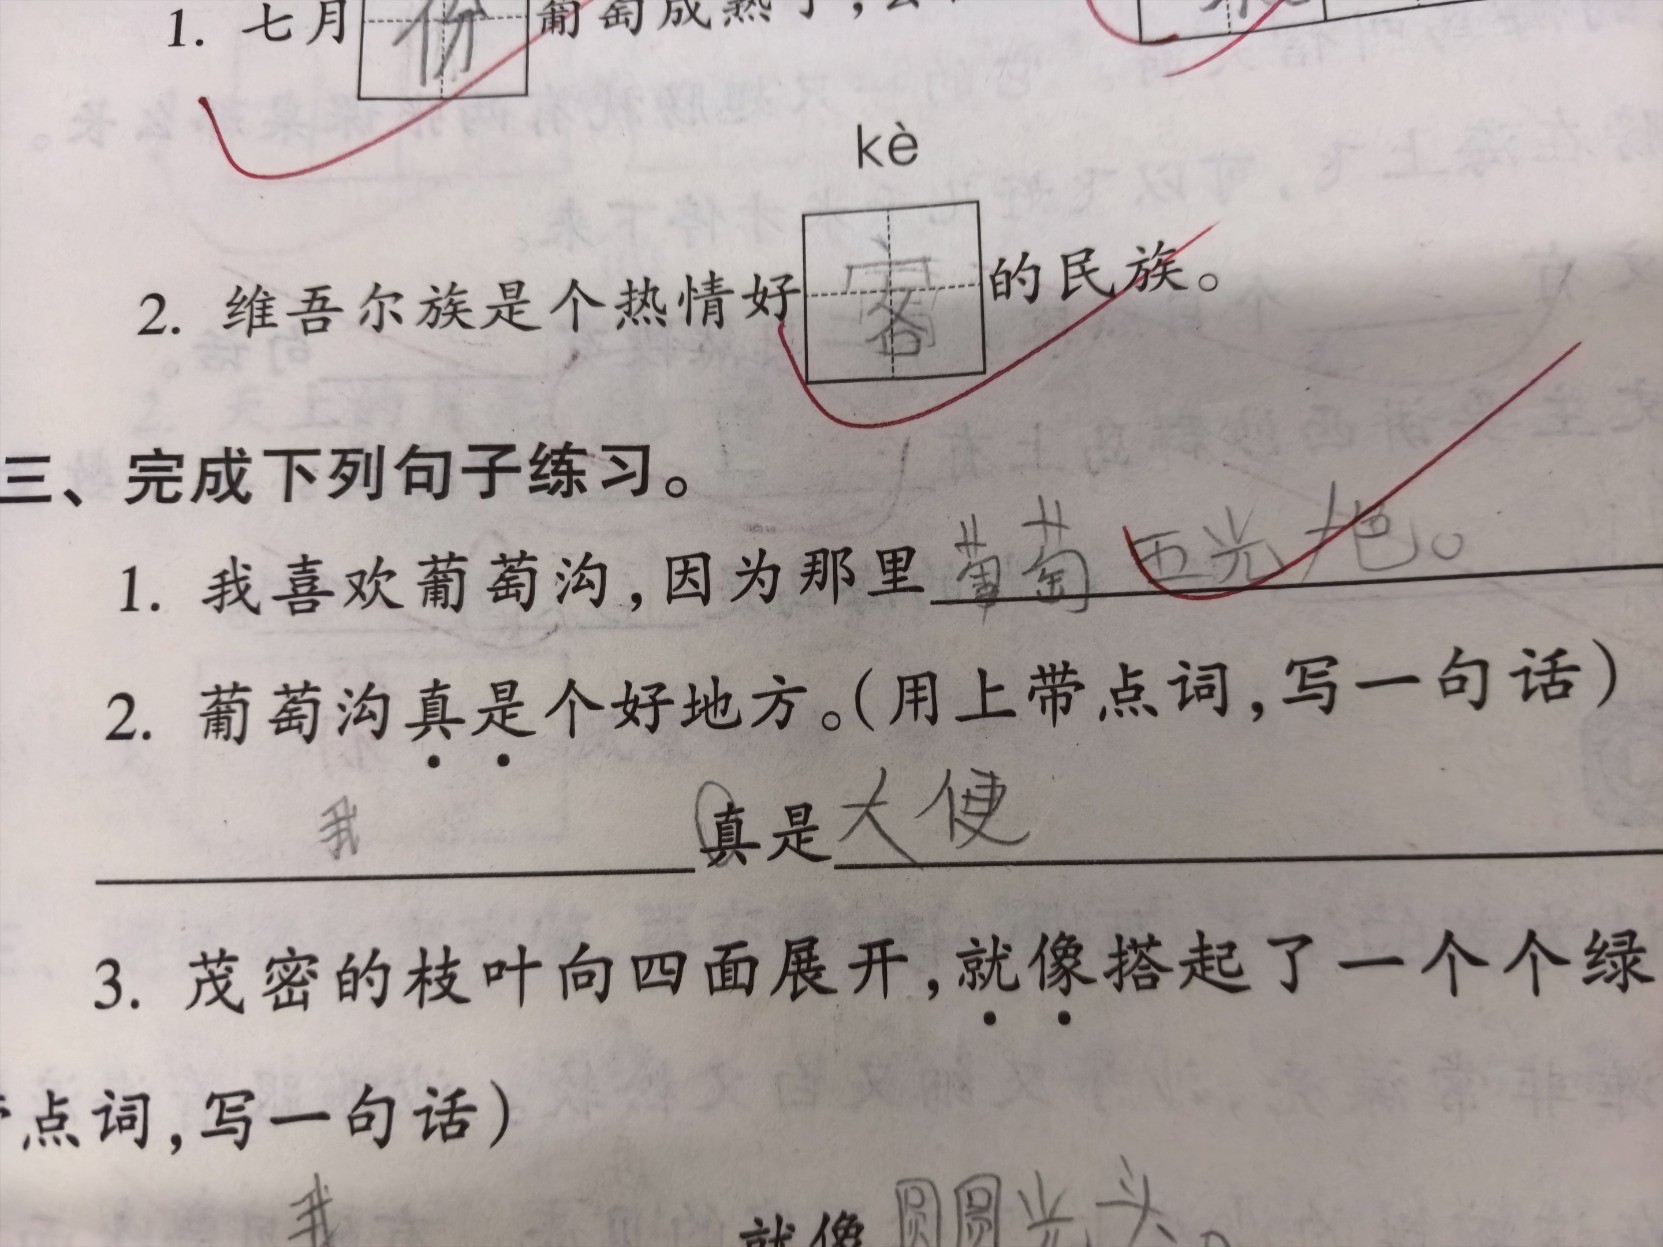 1. 七月份葡萄成熟了,
kè
2. 维吾尔族是个热情好客的民族。
三、完成下列句子练习。
1. 我喜欢葡萄沟,因为那里葡萄五光十色。
2. 葡萄沟真是个好地方。(用上带点词,写一句话)
我真是大便
3. 茂密的枝叶向四面展开,就像搭起了一个个绿
点词,写一句话)
我就像圆圆光头。